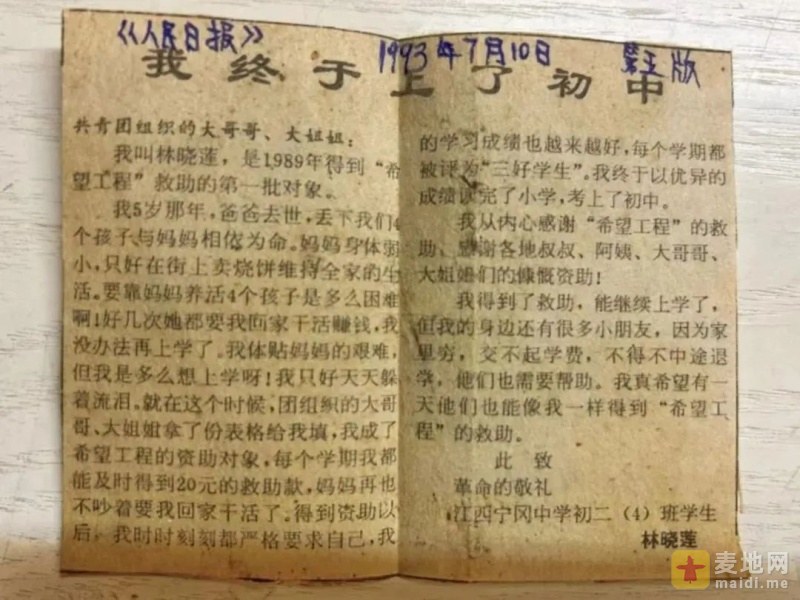 《人民日报》 1993年7月10日 第五版
我终于上了初中
共青团组织的大哥哥、大姐姐：
我叫林晓莲，是1989年得到“希
望工程”救助的第一批对象。
我5岁那年，爸爸去世，丢下我们4
个孩子与妈妈相依为命。妈妈身体弱
小，只好在街上卖烧饼维持全家的生
活。要靠妈妈养活4个孩子是多么困难
啊！好几次她都要我回家干活赚钱，我
没办法再上学了。我体贴妈妈的艰难，
但我是多么想上学呀！我只好天天躲
着流泪。就在这个时候，团组织的大哥
哥、大姐姐拿了份表格给我填，我成了
希望工程的资助对象，每个学期我都
能及时得到20元的救助款，妈妈再也
不吵着要我回家干活了。得到资助以
后，我时时刻刻都严格要求自己，我
的学习成绩也越来越好，每个学期都
被评为“三好学生”。我终于以优异的
成绩读完了小学，考上了初中。
我从内心感谢“希望工程”的救
助、感谢各地叔叔、阿姨、大哥哥、
大姐姐们的慷慨资助！
我得到了救助，能继续上学了，
但我的身边还有很多小朋友，因为家
里穷，交不起学费，不得不中途退
学，他们也需要帮助。我真希望有一
天他们也能像我一样得到“希望工
程”的救助。
此致
革命的敬礼
江西宁冈中学初二（4）班学生
林晓莲
麦地网
maidi.me